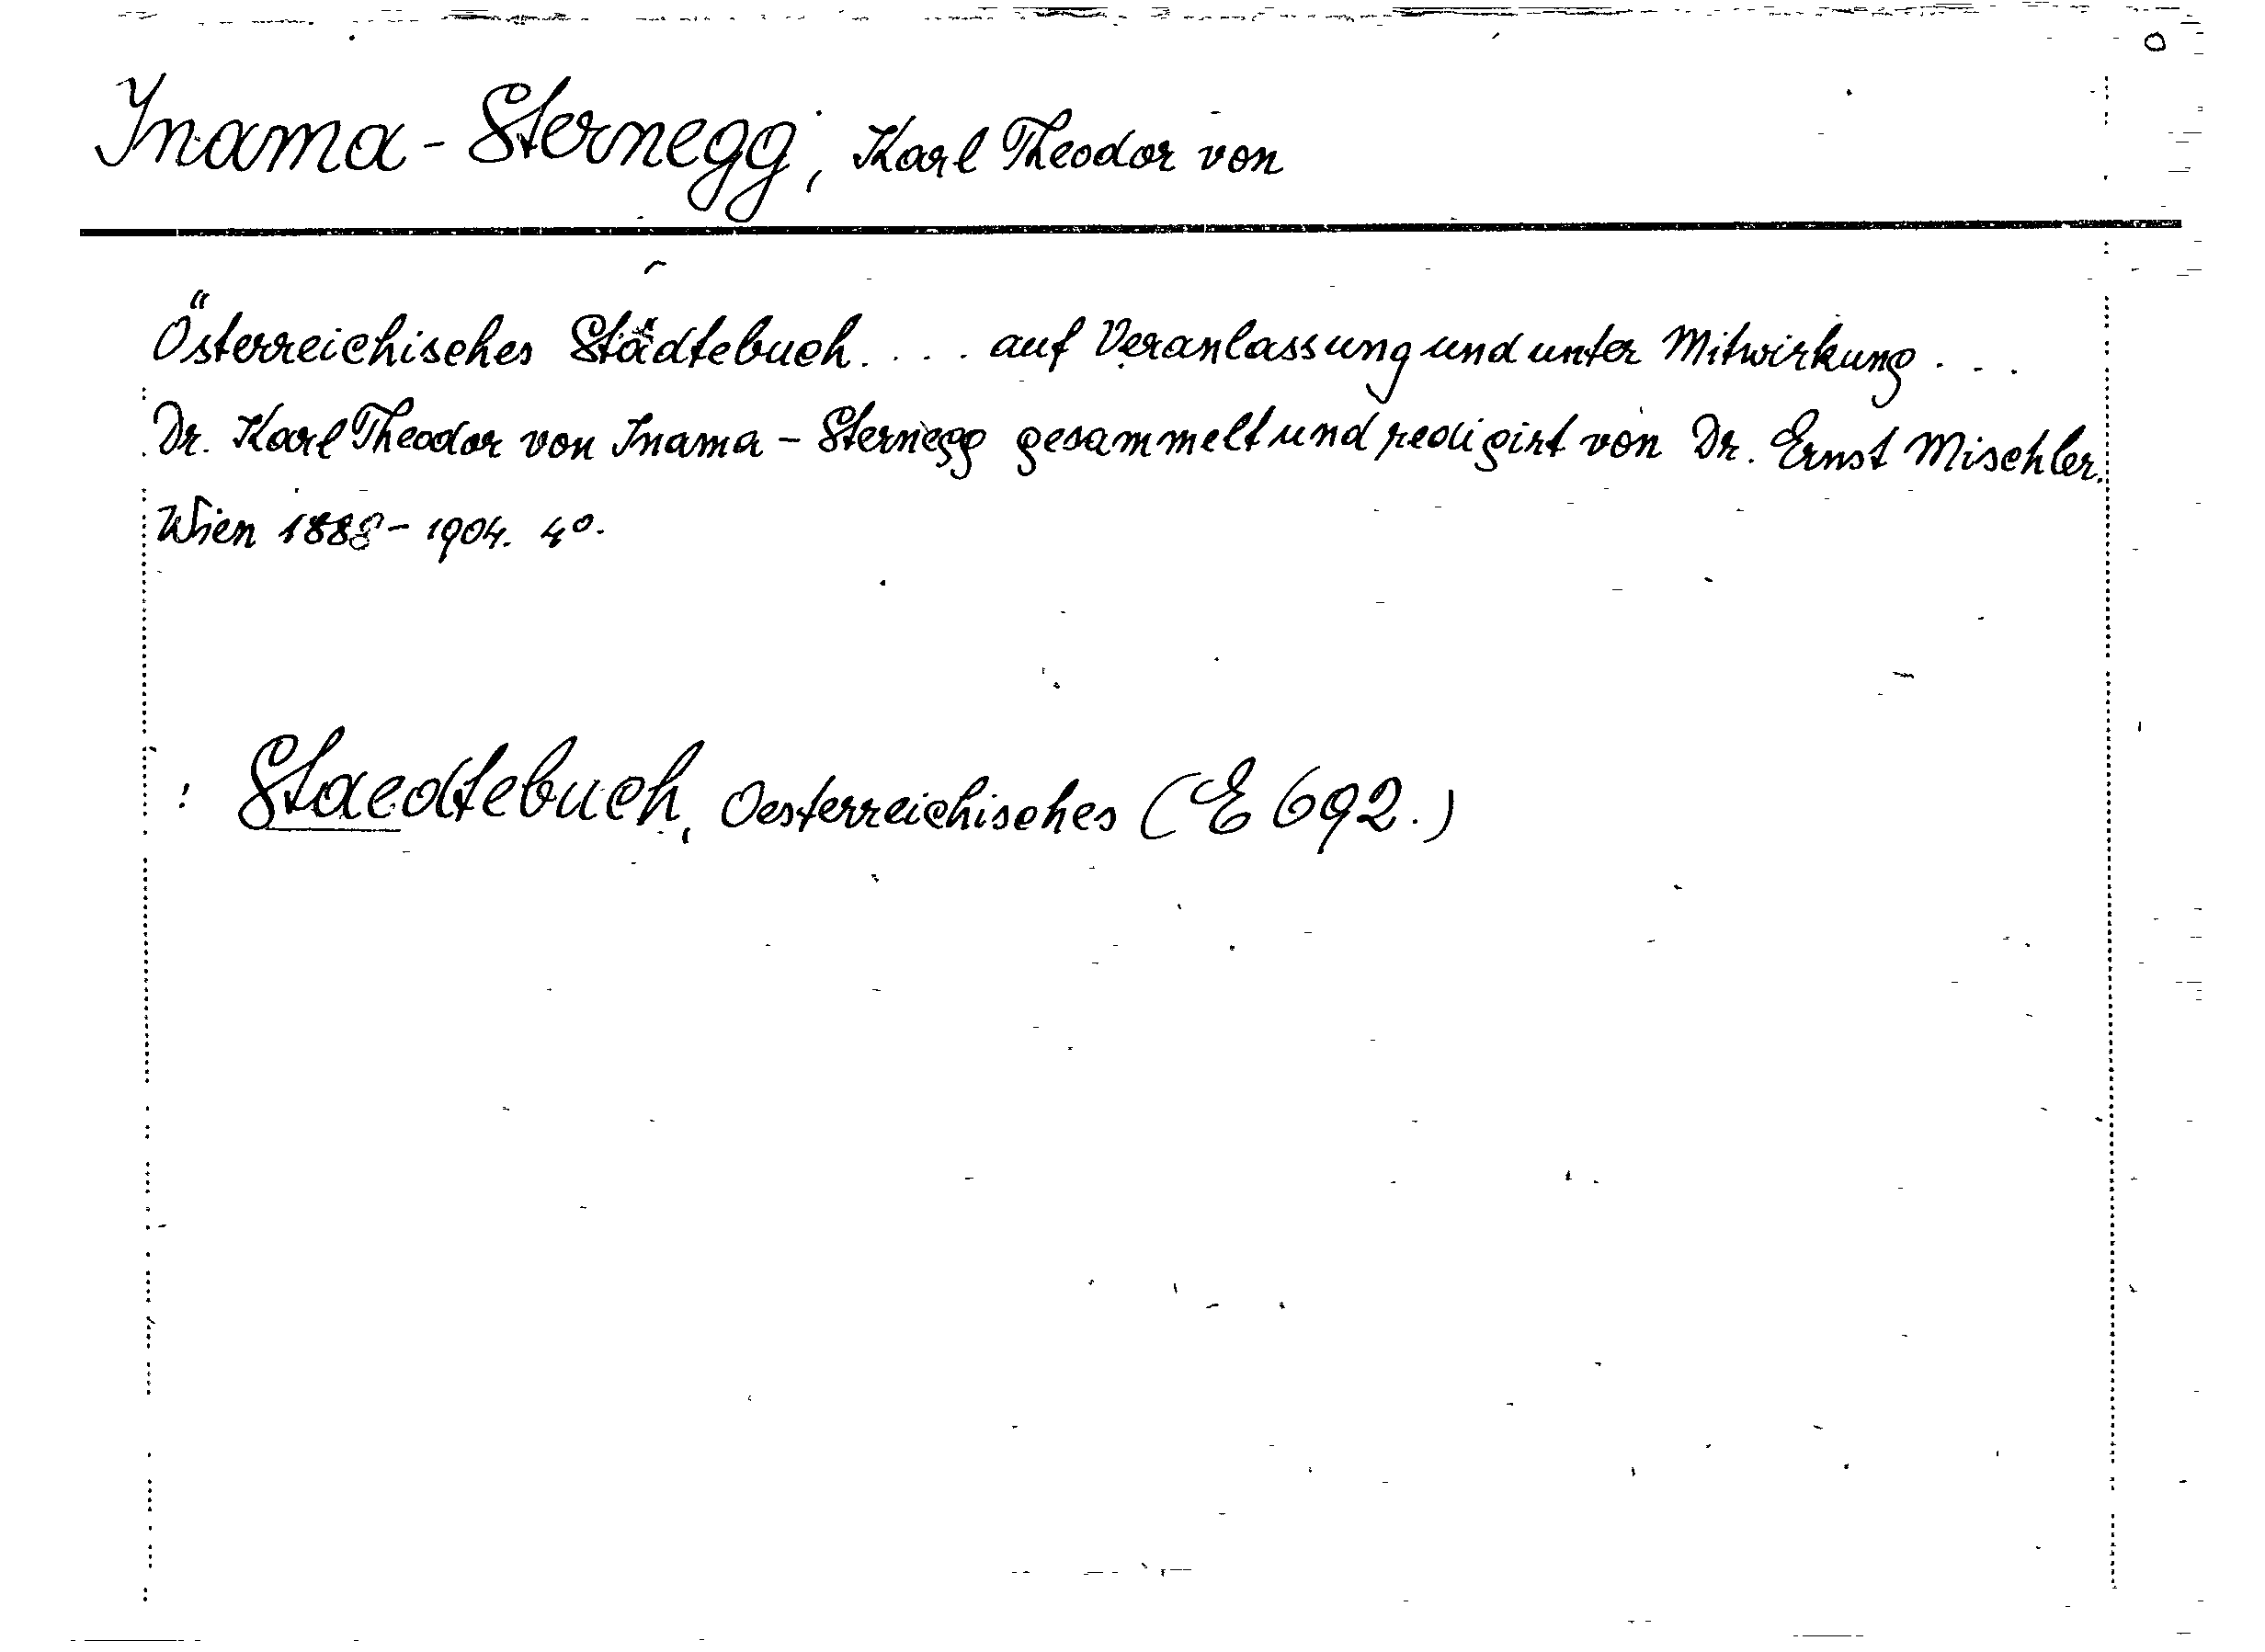 Inama-Sternegg, Karl Theodor von
Österreichisches Städtebuch. ... auf Veranlassung und unter Mitwirkung ...
Dr. Karl Theodor von Inama-Sternegg gesammelt und redigirt von Dr. Ernst Mischler.
Wien 1888-1904. 4°.
: Staedtebuch, Oesterreichisches (E 692.)